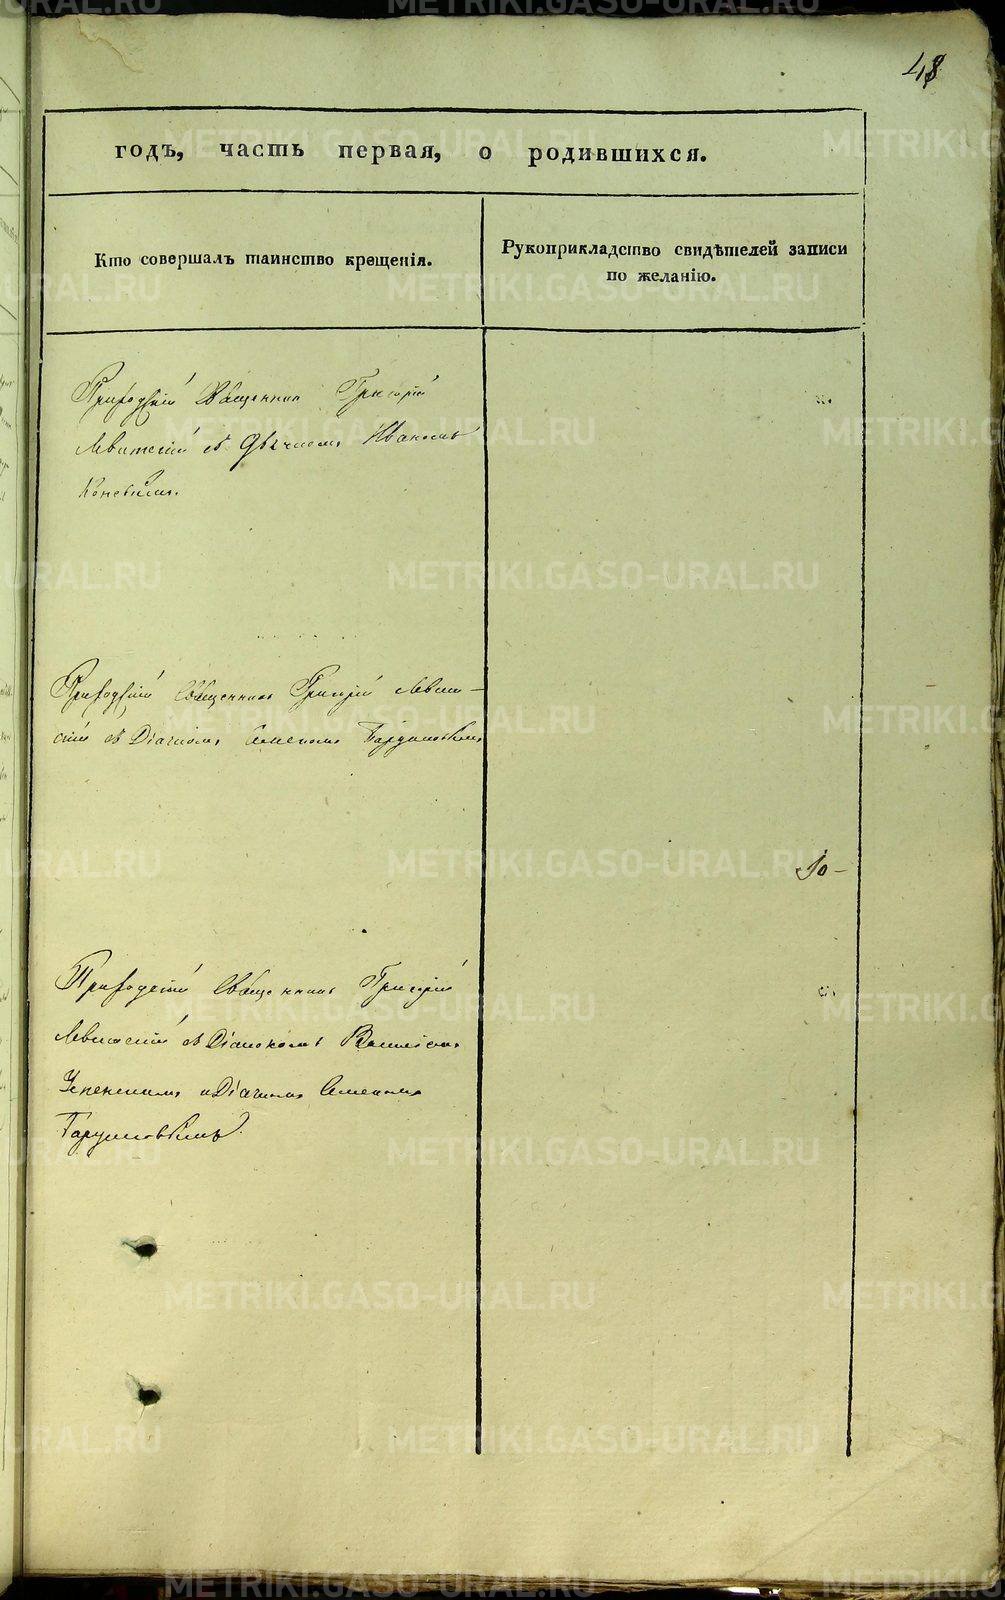 48
годъ, часть первая, о родившихся.
Кто совершалъ таинство крещенія.
Рукоприкладство свидѣтелей записи
по желанію.
Приходскій Священникъ Григорій
Левитскій съ Дьячкомъ Иваномъ
Приходскій Священникъ Григорій Левит-
скій съ Діачкомъ Семеномъ
10-
Приходскій Священникъ Григорій
Левитскій съ Діакономъ
Успенскимъ и Діачкомъ Семеномъ
METRIKI.GASO-URAL.RU